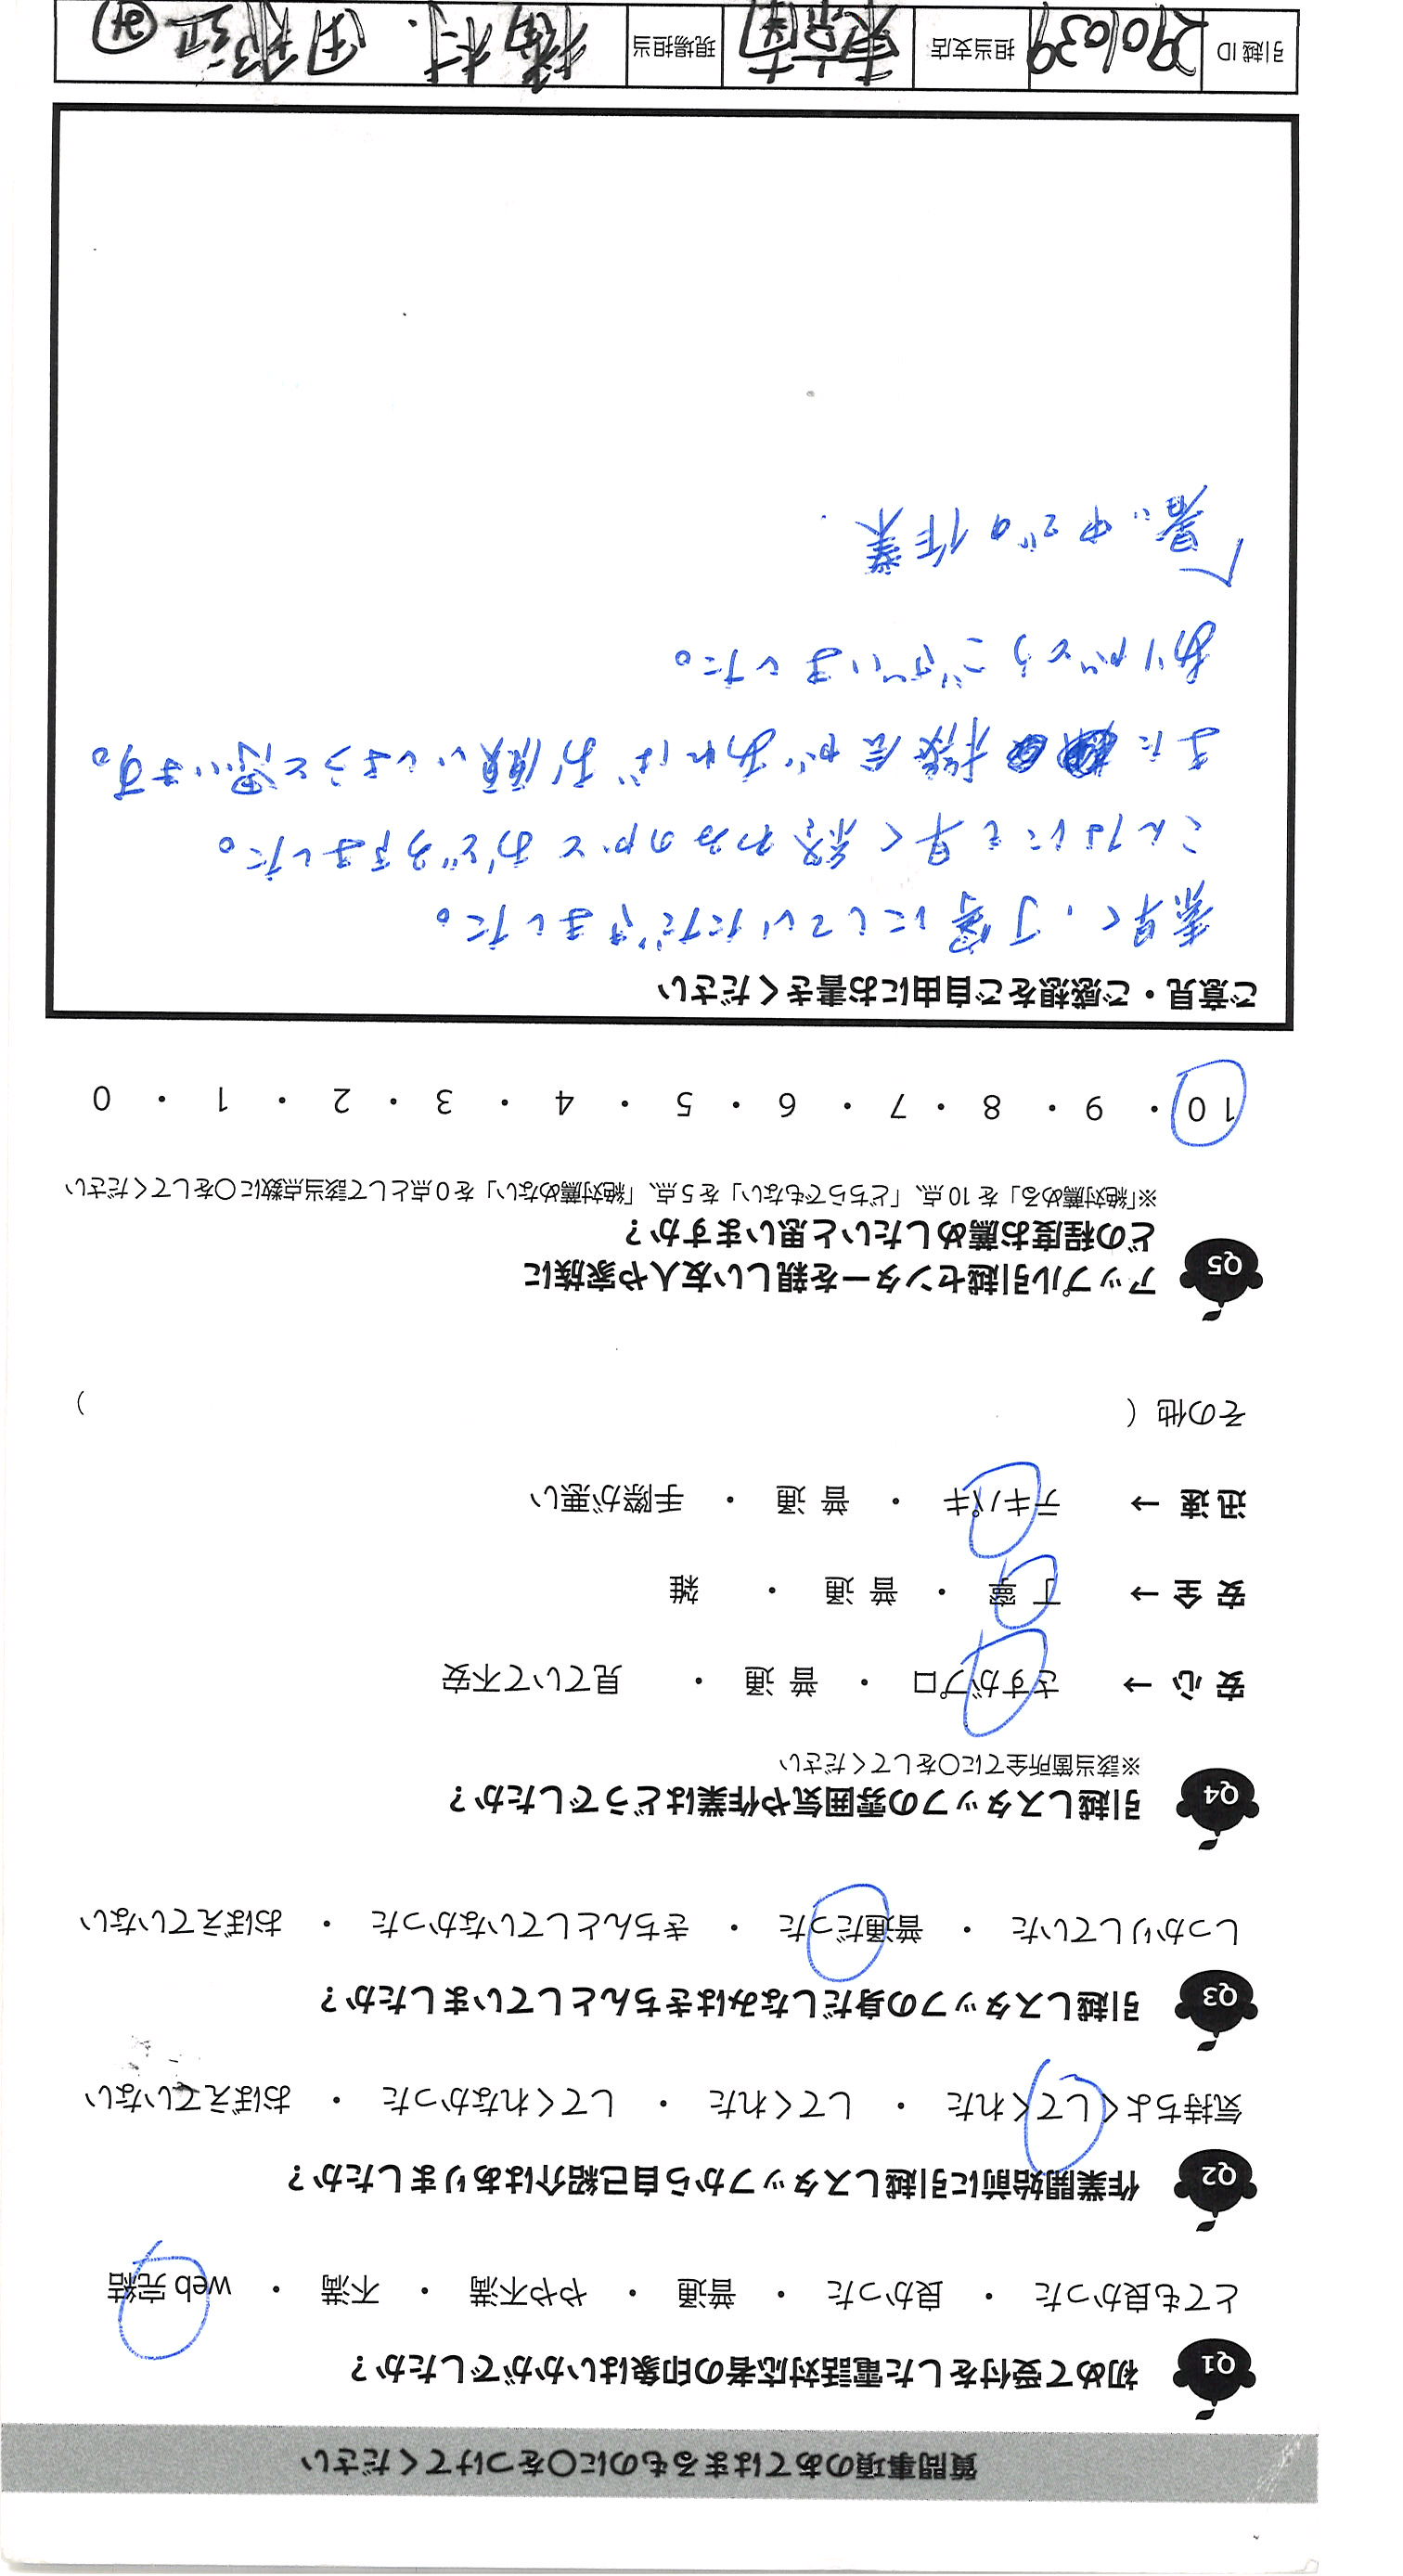 質問事項のあてはまるものに○をつけてください
Q1 初めて受付をした電話対応者の印象はいかがでしたか？
とても良かった ・ 良かった ・ 普通 ・ やや不満 ・ 不満 ・ web 完結
Q2 作業開始前に引越しスタッフから自己紹介はありましたか？
気持ちよくしてくれた ・ してくれた ・ してくれなかった ・ おぼえていない
Q3 引越しスタッフの身だしなみはきちんとしていましたか？
しっかりしていた ・ 普通だった ・ きちんとしていなかった ・ おぼえていない
Q4 引越しスタッフの雰囲気や作業はどうでしたか？
※該当箇所全てに○をしてください
安 心 → さすがプロ ・ 普 通 ・ 見ていて不安
安 全 → 丁 寧 ・ 普 通 ・ 雑
迅 速 → テキパキ ・ 普 通 ・ 手際が悪い
その他（ ）
Q5 アップル引越センターを親しい友人や家族に
どの程度お薦めしたいと思いますか？
※「絶対薦める」を 10 点、「どちらでもない」を 5 点、「絶対薦めない」を 0 点として該当点数に○をしてください
10 ・ 9 ・ 8 ・ 7 ・ 6 ・ 5 ・ 4 ・ 3 ・ 2 ・ 1 ・ 0
ご意見・ご感想をご自由にお書きください
素早く、丁寧にしていただきました。
こんなにも早く終わるのかとおどろきました。
また機会があればお願いしようと思います。
ありがとうございました。
暑い中での作業
引越 ID 2901039 担当支店 東京南 現場担当